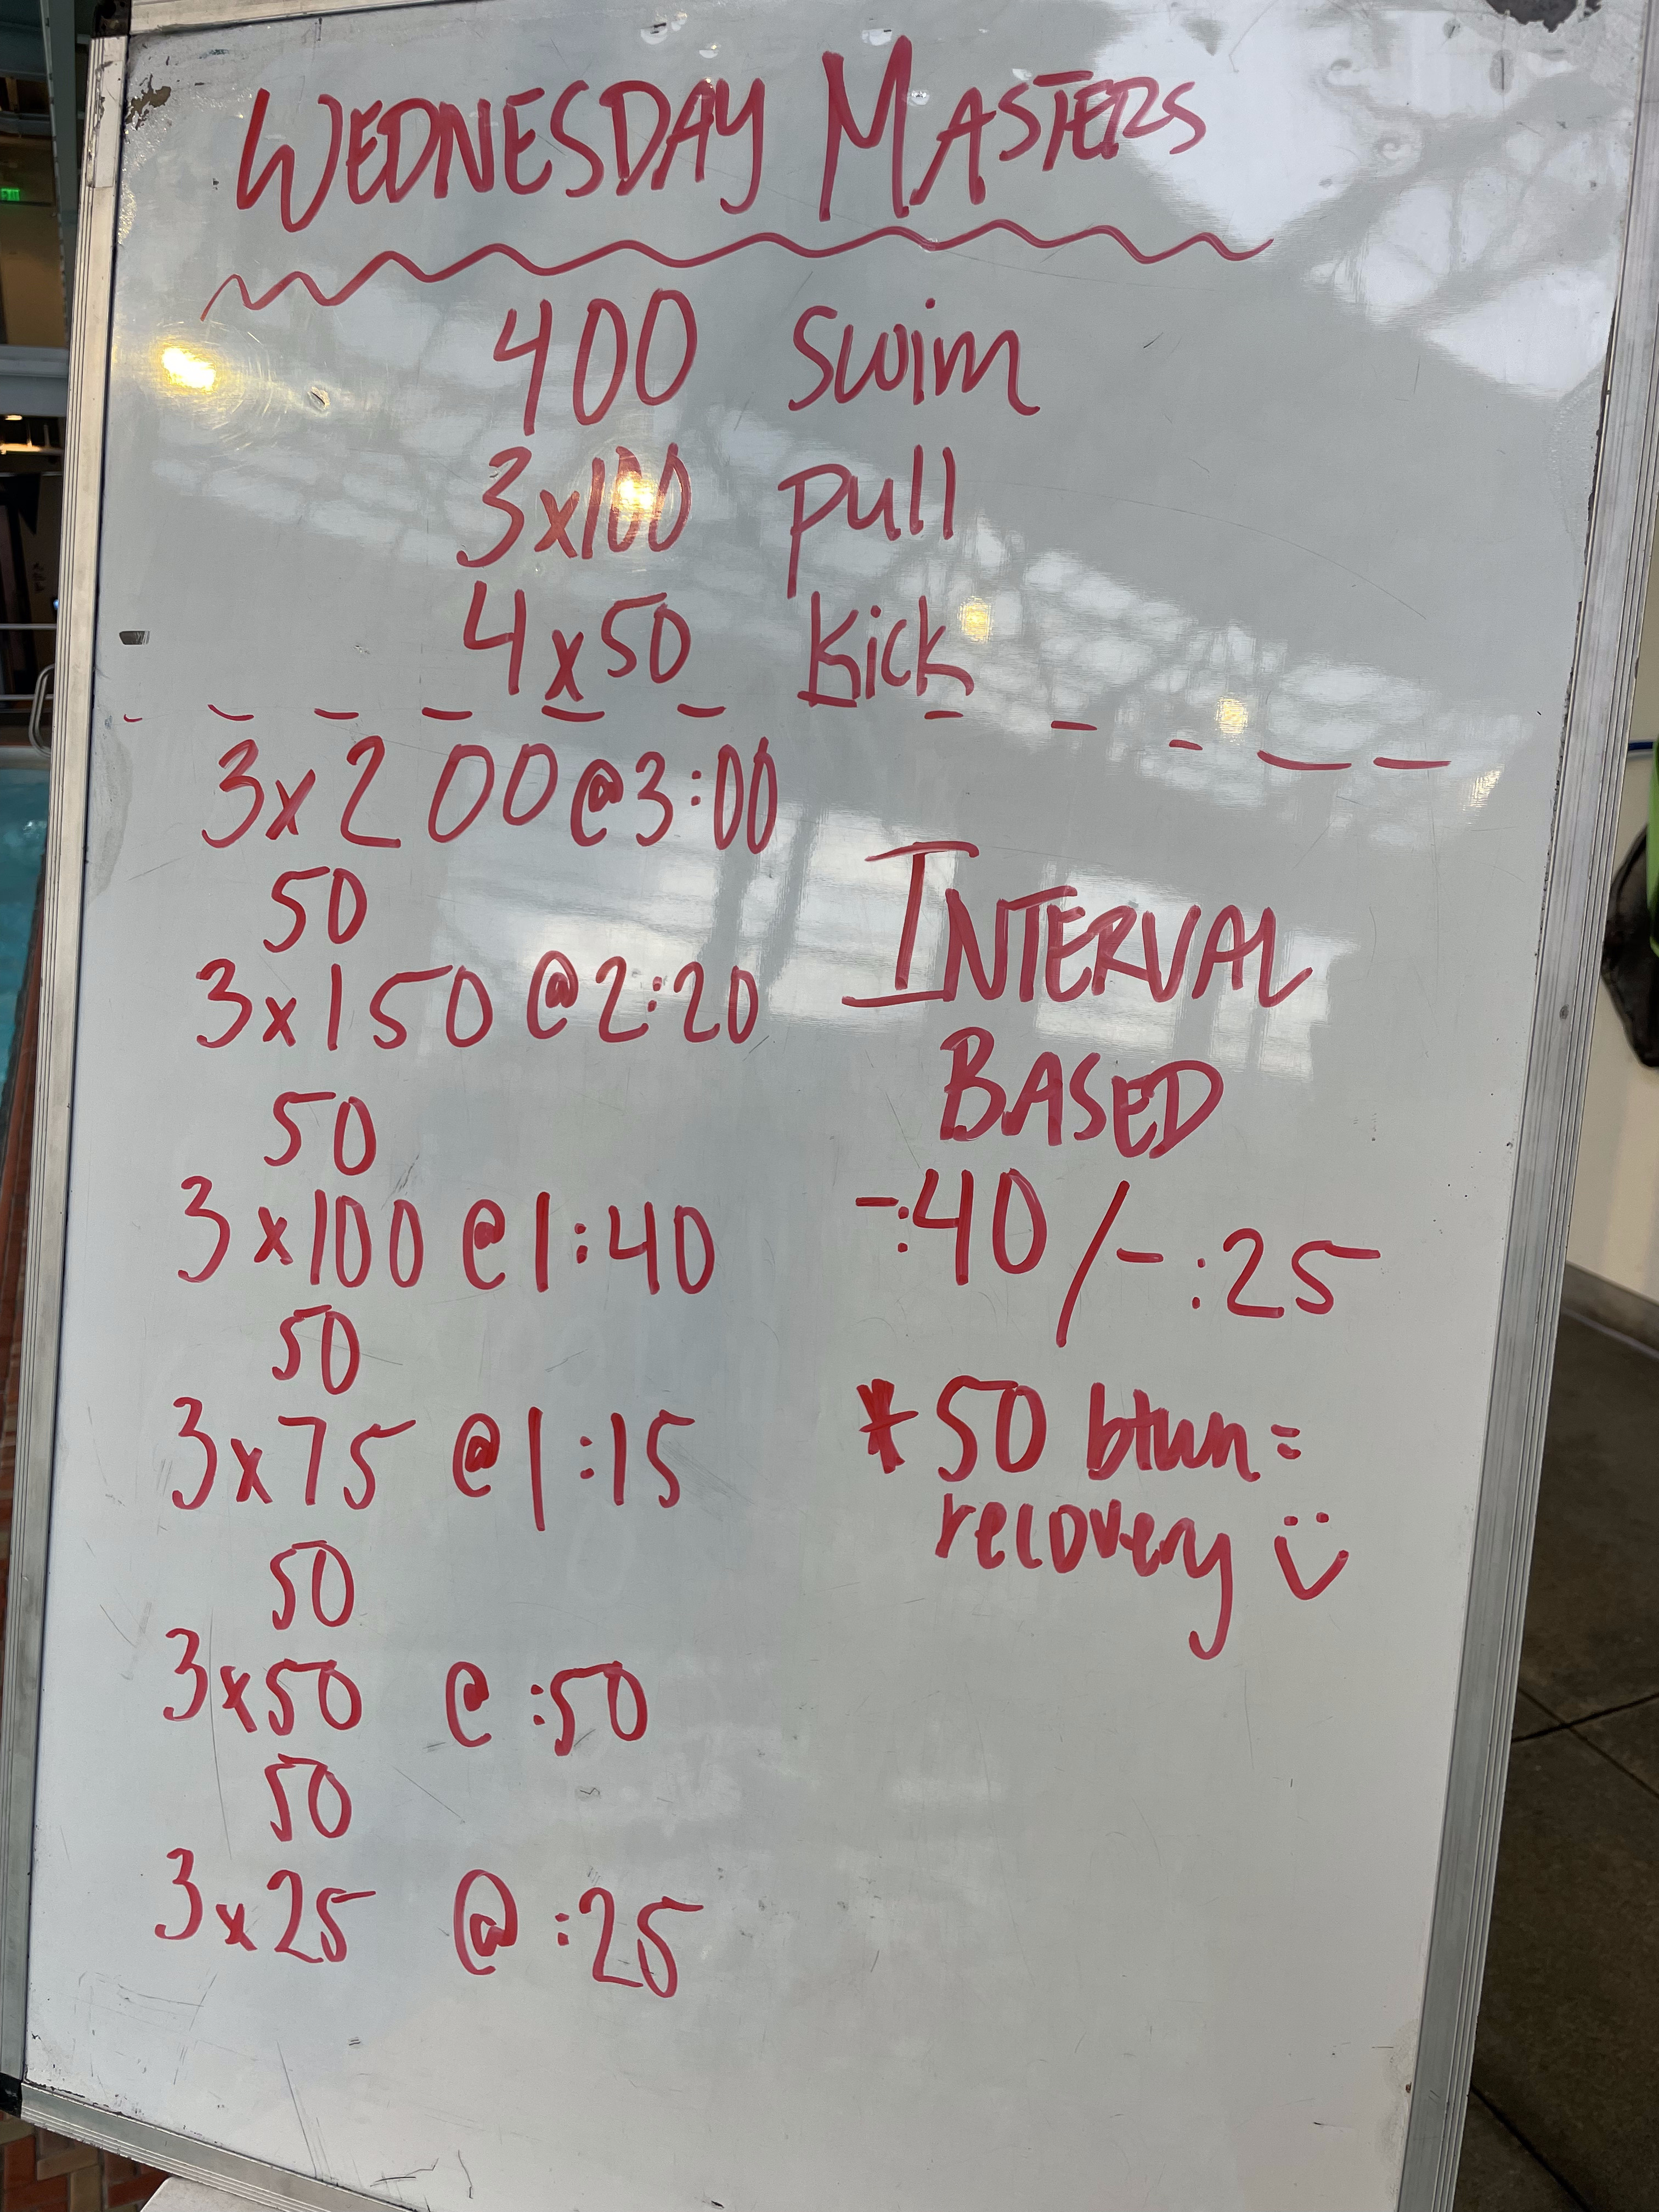 WEDNESDAY MASTERS
400 swim
3x100 pull
4x50 kick
3x200@3:00
50
3x150@2:20
50
3x100@1:40
50
3x75 @1:15
50
3x50 @ :50
50
3x25 @ :25
INTERVAL
BASED
-:40/- :25
*50 btwn=
recovery :)